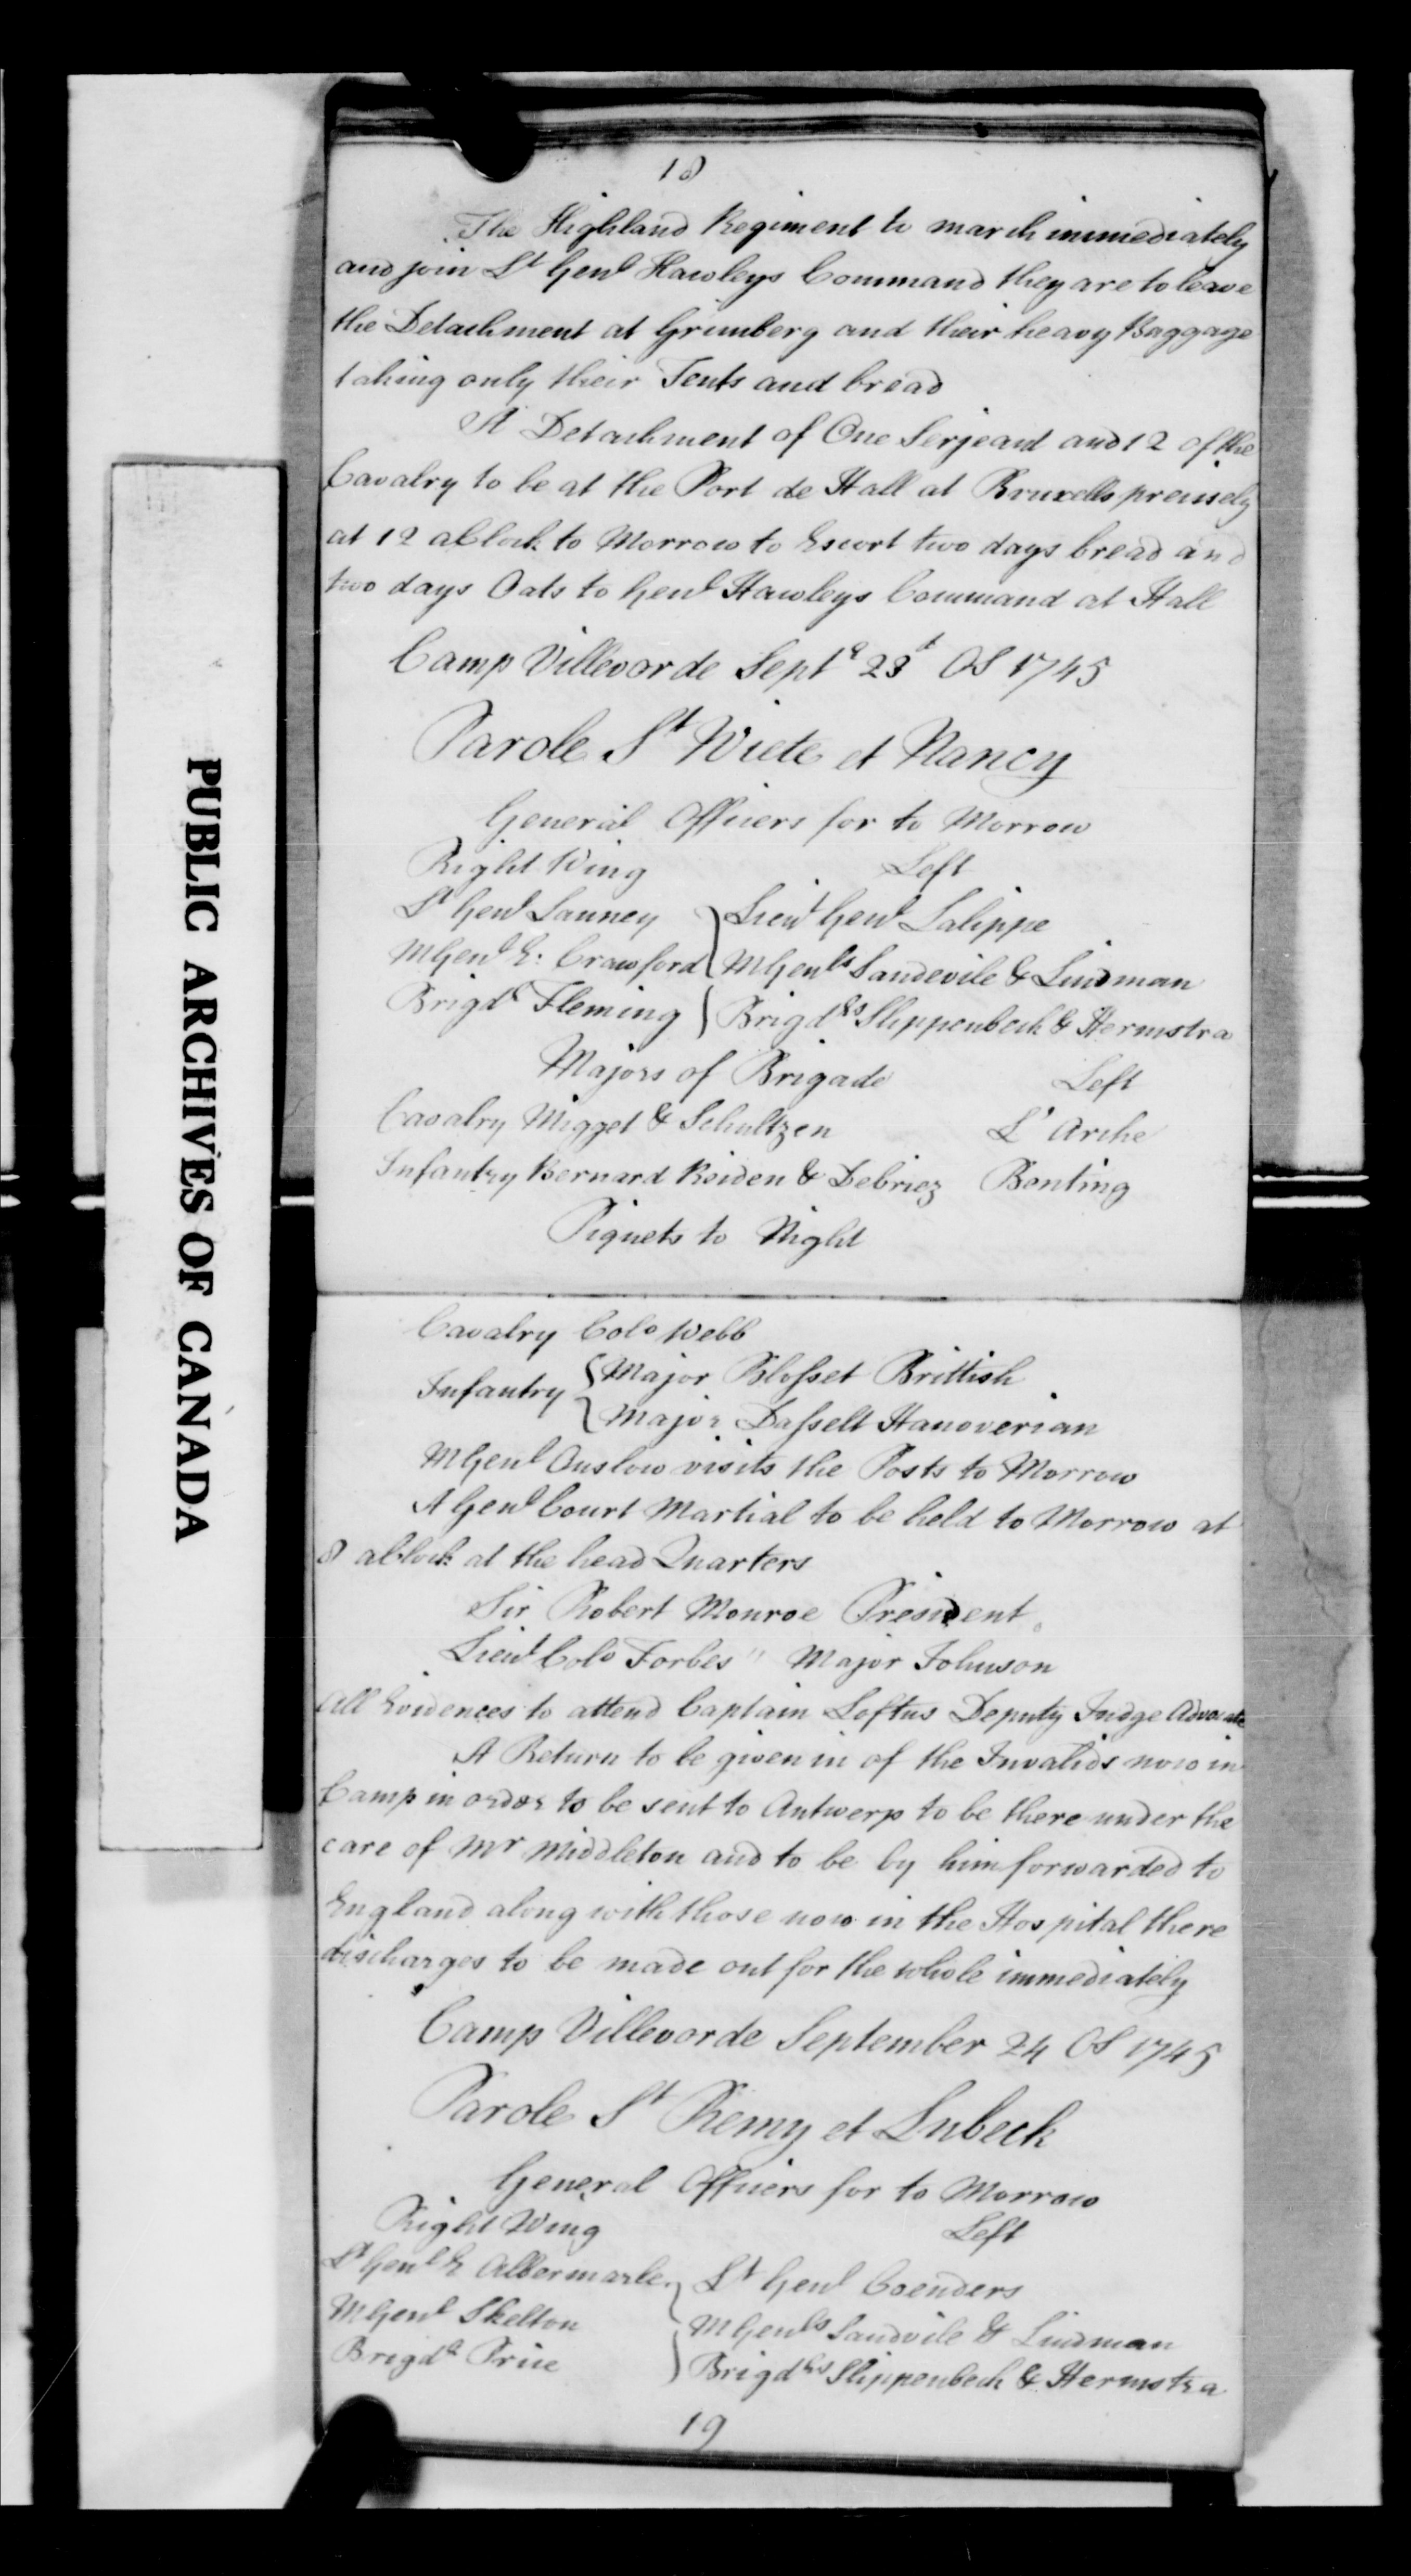 18
The Highland Regiment to march immediately
and join Lt Genl Hawleys Command they are to leave
the Detachment at Grimberg and their heavy Baggage
taking only their Tents and bread
A Detachment of One Serjeant and 12 of the
Cavalry to be at the Port de Hall at Bruxells precisely
at 12 aClock to Morrow to Escort two days bread and
two days Oats to Genl Hawleys Command at Hall
Camp Villevorde Septr 23d OS 1745
Parole St Wiete et Nancy
General Officers for to Morrow
Right Wing Left
Lt Genl Sanney Lieut Genl Lalippe
MGenl E: Crawford MGenls Sandevile & Lindman
Brigdr Fleming Brigdrs Slippenbech & Hermstra
Majors of Brigade Left
Cavalry Migget & Schultzen L'Arche
Infantry Bernard Reiden & Debriez Benting
Piquets to Night
Cavalry Colo Webb
Infantry Major Blosset Brittish
Major Dasselt Hanoverian
MGenl Onslow visits the Posts to Morrow
A Genl Court Martial to be held to Morrow at
8 aClock at the head Quarters
Sir Robert Monroe President
Lieut Colo Forbes " Major Johnson
All Evidences to attend Captain Loftus Deputy Judge Advocate
A Return to be given in of the Invalids now in
Camp in order to be sent to Antwerp to be there under the
care of Mr Middleton and to be by him forwarded to
England along with those now in the Hospital there
discharges to be made out for the whole immediately
Camp Villevorde September 24 OS 1745
Parole St Remy et Lubeck
General Officers for to Morrow
Right Wing Left
Lt Genl E Albermarle Lt Genl Coenders
MGenl Skelton MGenls Sandvile & Lindman
Brigdr Price Brigdrs Slippenbech & Hermstra
19
PUBLIC ARCHIVES OF CANADA